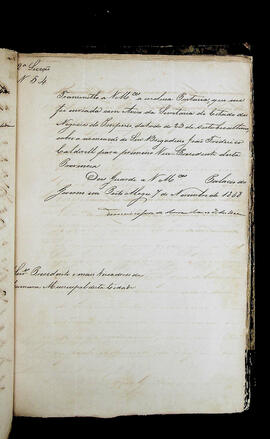 2ª Secção
N 54
Transmitto a V. Mces a inclusa Portaria, que me
foi enviada com Aviso da Secretaria de Estado dos
Negocios do Imperio, datado de 23 de Outubro ultimo
sobre a nomeação do Snr Brigadeiro João Frederico
Caldwell para primeiro Vice Presidente desta
Provincia
Deos Guarde a V. Mces Palacio do
Governo em Porto Alegre 7 de Novembro de 1863
Snr Presidente e mais Vereadores da
Camara Municipal desta Cidade